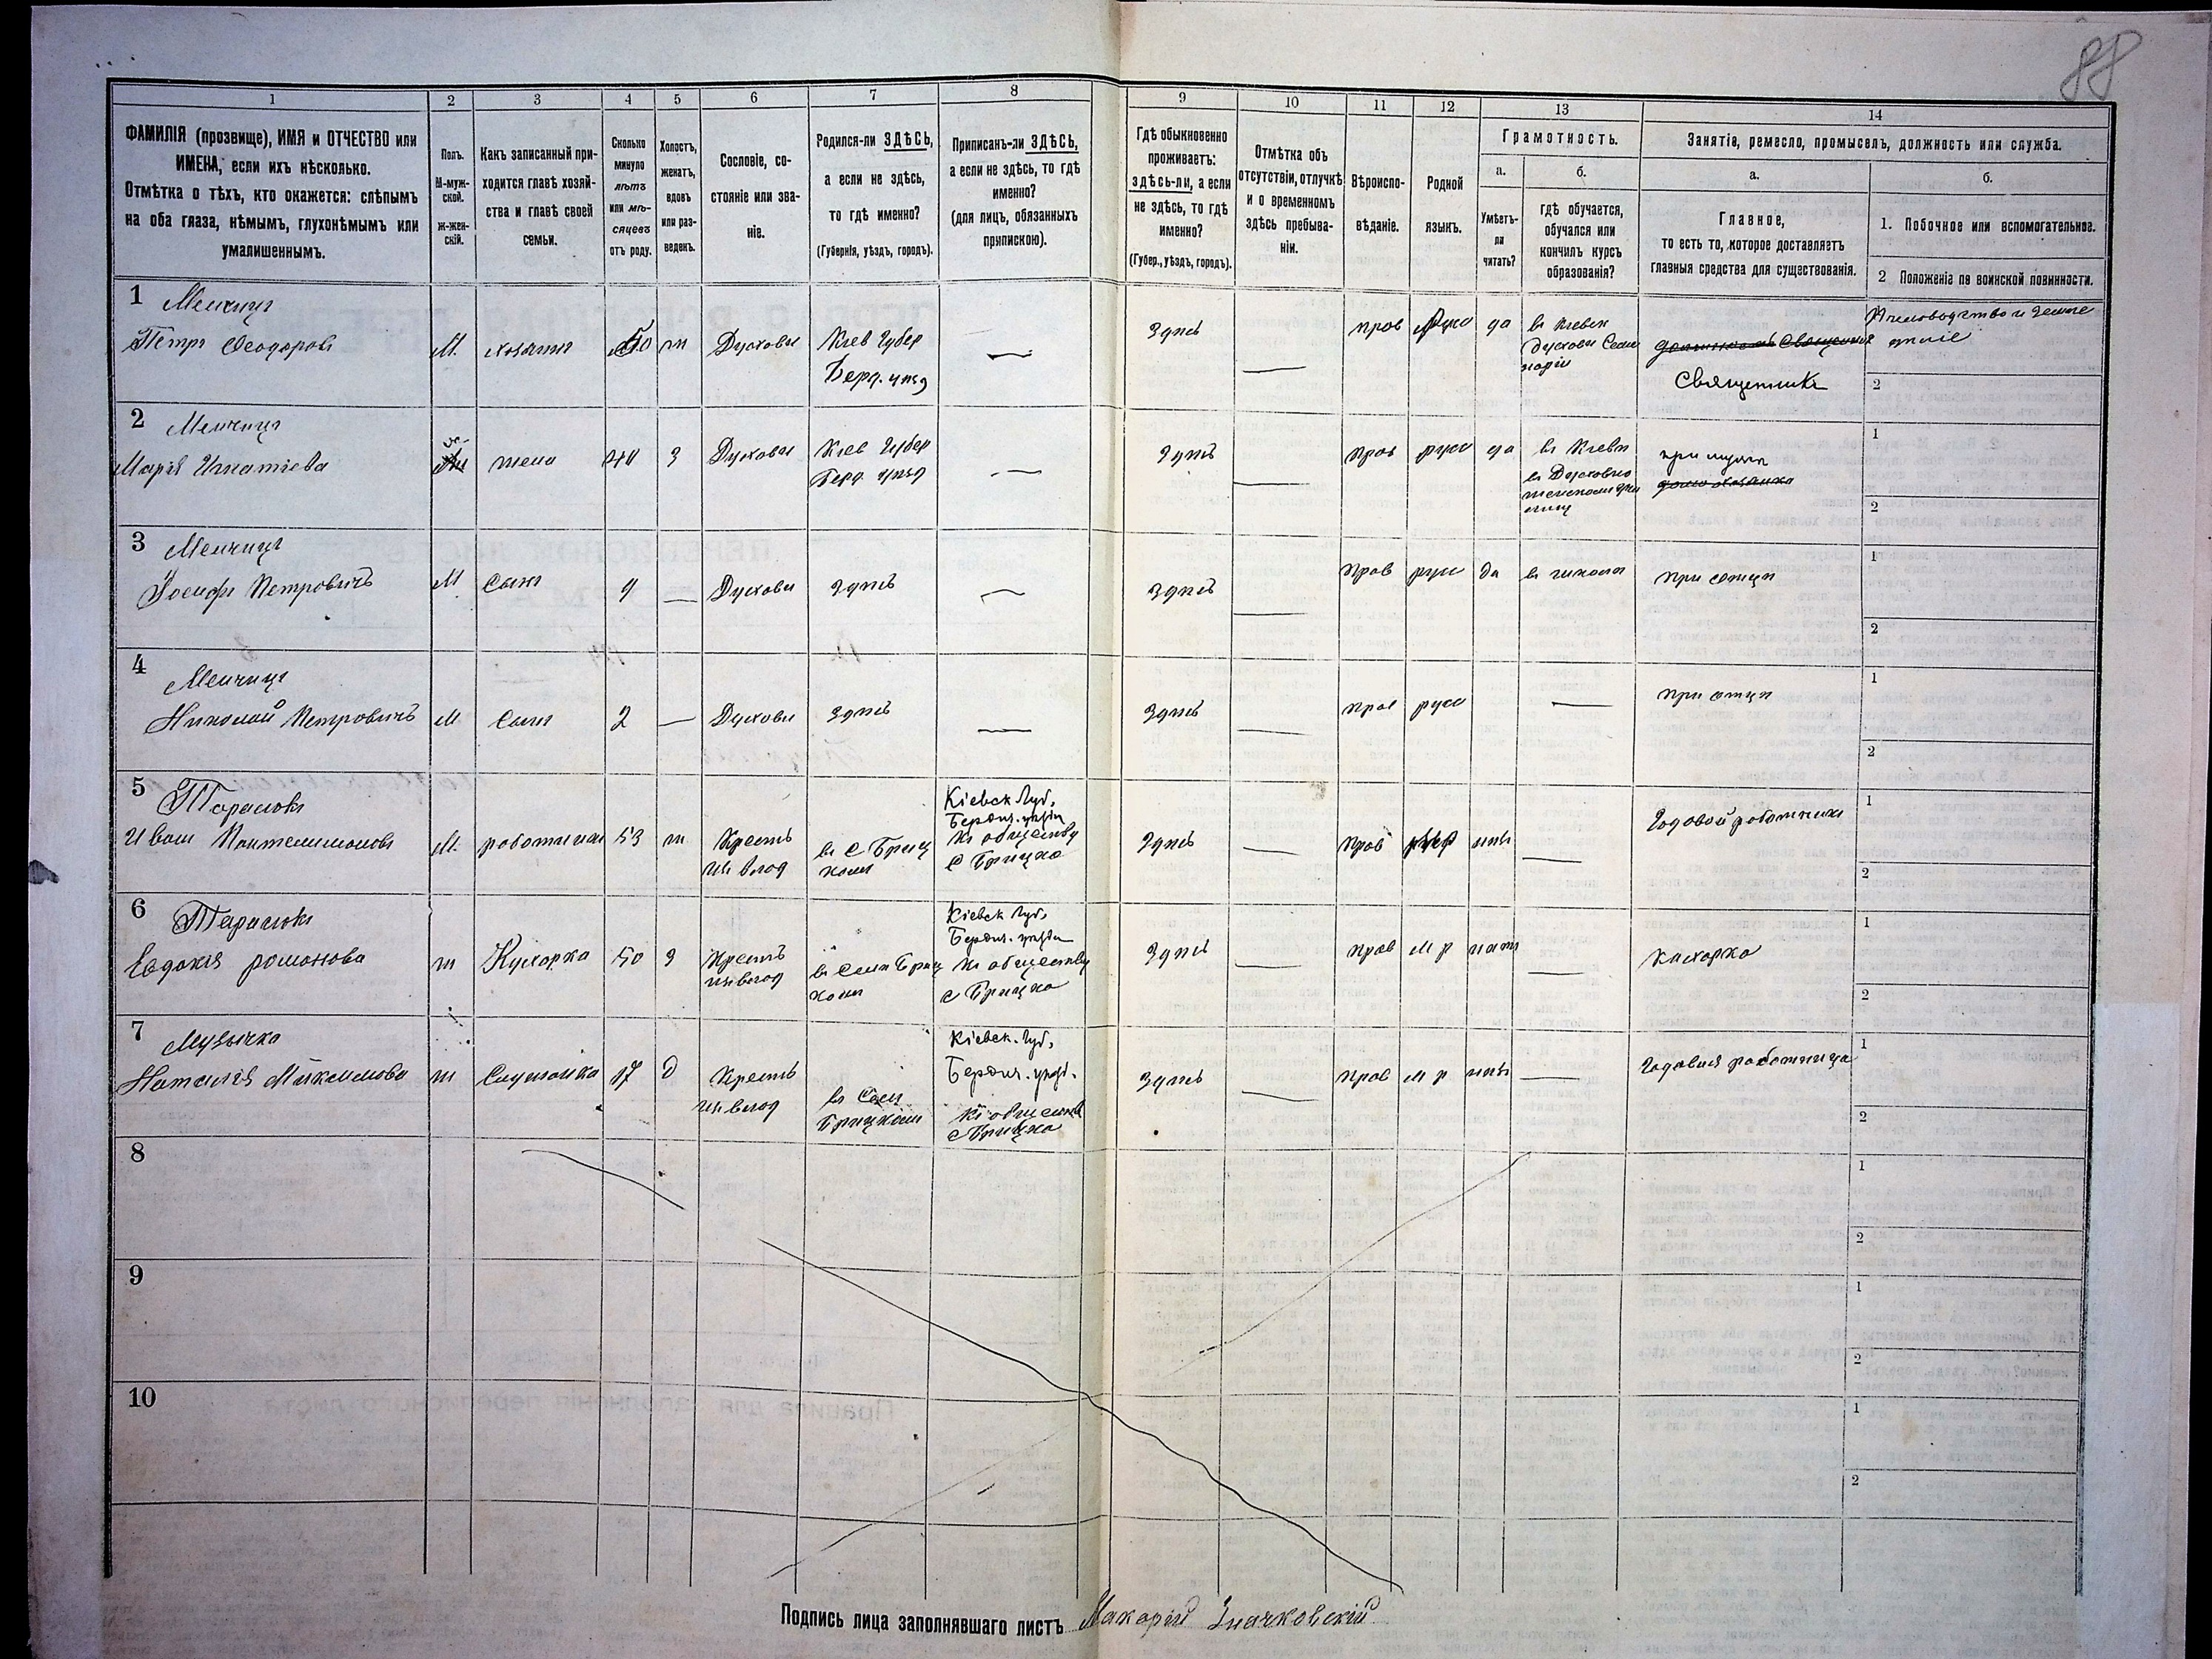 88
1
2
3
4
5
6
7
8
9
10
11
12
13
14
ФАМИЛІЯ (прозвище), ИМЯ и ОТЧЕСТВО или
ИМЕНА, если ихъ нѣсколько.
Отмѣтка о тѣхъ, кто окажется: слѣпымъ
на оба глаза, нѣмымъ, глухонѣмымъ или
умалишеннымъ.
Полъ.
М-муж-
ской.
Ж-жен-
скій.
Какъ записанный при-
ходится главѣ хозяй-
ства и главѣ своей
семьи.
Сколько
минуло
лѣтъ
или мѣ-
сяцевъ
отъ роду.
Холостъ,
женатъ,
вдовъ
или раз-
веденъ.
Сословіе, со-
стояніе или зва-
ніе.
Родился-ли ЗДѢСЬ,
а если не здѣсь,
то гдѣ именно?
(Губернія, уѣздъ, городъ).
Приписанъ-ли ЗДѢСЬ,
а если не здѣсь, то гдѣ
именно?
(для лицъ, обязанныхъ
припискою).
Гдѣ обыкновенно
проживаетъ:
здѣсь-ли, а если
не здѣсь, то гдѣ
именно?
(Губер., уѣздъ, городъ).
Отмѣтка объ
отсутствіи, отлучкѣ
и о временномъ
здѣсь пребыва-
ніи.
Вѣроиспо-
вѣданіе.
Родной
языкъ.
Грамотность.
а.
Умѣетъ-
ли
читать?
б.
гдѣ обучается,
обучался или
кончилъ курсъ
образованія?
Занятіе, ремесло, промыселъ, должность или служба.
а.
Главное,
то есть то, которое доставляетъ
главныя средства для существованія.
б.
1. Побочное или вспомогательное.
2 Положеніе по воинской повинности.
1
Петръ Ѳеодоровъ
М. хозяинъ 50 ж Духовн
Кіев Губер
Берд. уѣзд
—
Здѣсь — прав русс да
в Кіевск
духовн Семи
наріи
Священникъ
Пчеловодство и земле
дѣліе
2
2
Марія Игнатіева
жена З Духовн
Кіев Губер
Берд. уѣзд
—
Здѣсь — прав русс да
в Кіевѣ
при мужѣ
1
2
3
Іосифъ Петровичъ
М Сынъ 9 — Духовн здѣсь —
Здѣсь — прав русс да в школѣ при отцѣ
1
2
4
Николай Петровичъ
М Сынъ 2 — Духовн Здѣсь —
Здѣсь — прав русс — при отцѣ
1
2
5 Тарасюкъ
Иванъ Пантелимоновъ
М. работникъ 53 ж
Крестъ
из влад
в с Бриц
комъ
Кіевск Губ.
Бердич. уѣзда
къ обществу
с Брицка
Здѣсь — прав нѣтъ —
Годовой работникъ
1
2
6 Тарасюкъ
Евдокія романова
ж Кухарка 50 З
Крестъ
из влад
в селѣ Бриц
комъ
Кіевск Губ.
Бердич. уѣзда
къ обществу
с Брицка
Здѣсь — прав м р нѣтъ —
кухарка
1
2
7
Музычка
Наталія Максимова
ж Служанка 17 д
Крестъ
из влад
в Сел
Брицкомъ
Кіевск. Губ.
Бердич. уѣзд.
къ обществ
с Брицка
Здѣсь — прав м р нѣтъ —
Годовая работница
1
2
8
1
2
9
1
2
10
1
2
Подпись лица заполнявшаго листъ Макарій Значковскій